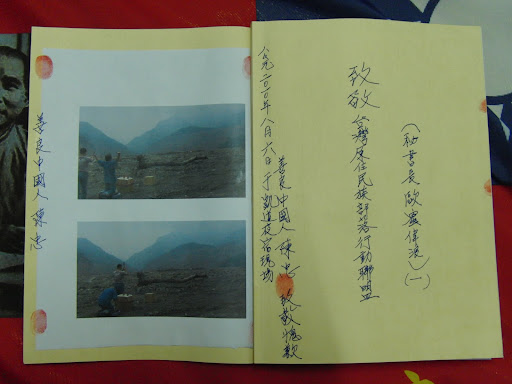 (秘書長歐蜜偉浪)(一)
致敬台灣原住民族部落行動聯盟
善良中國人陳忠
公元二〇一〇年八月六日于凱道夜宿現場
善良中國人陳忠